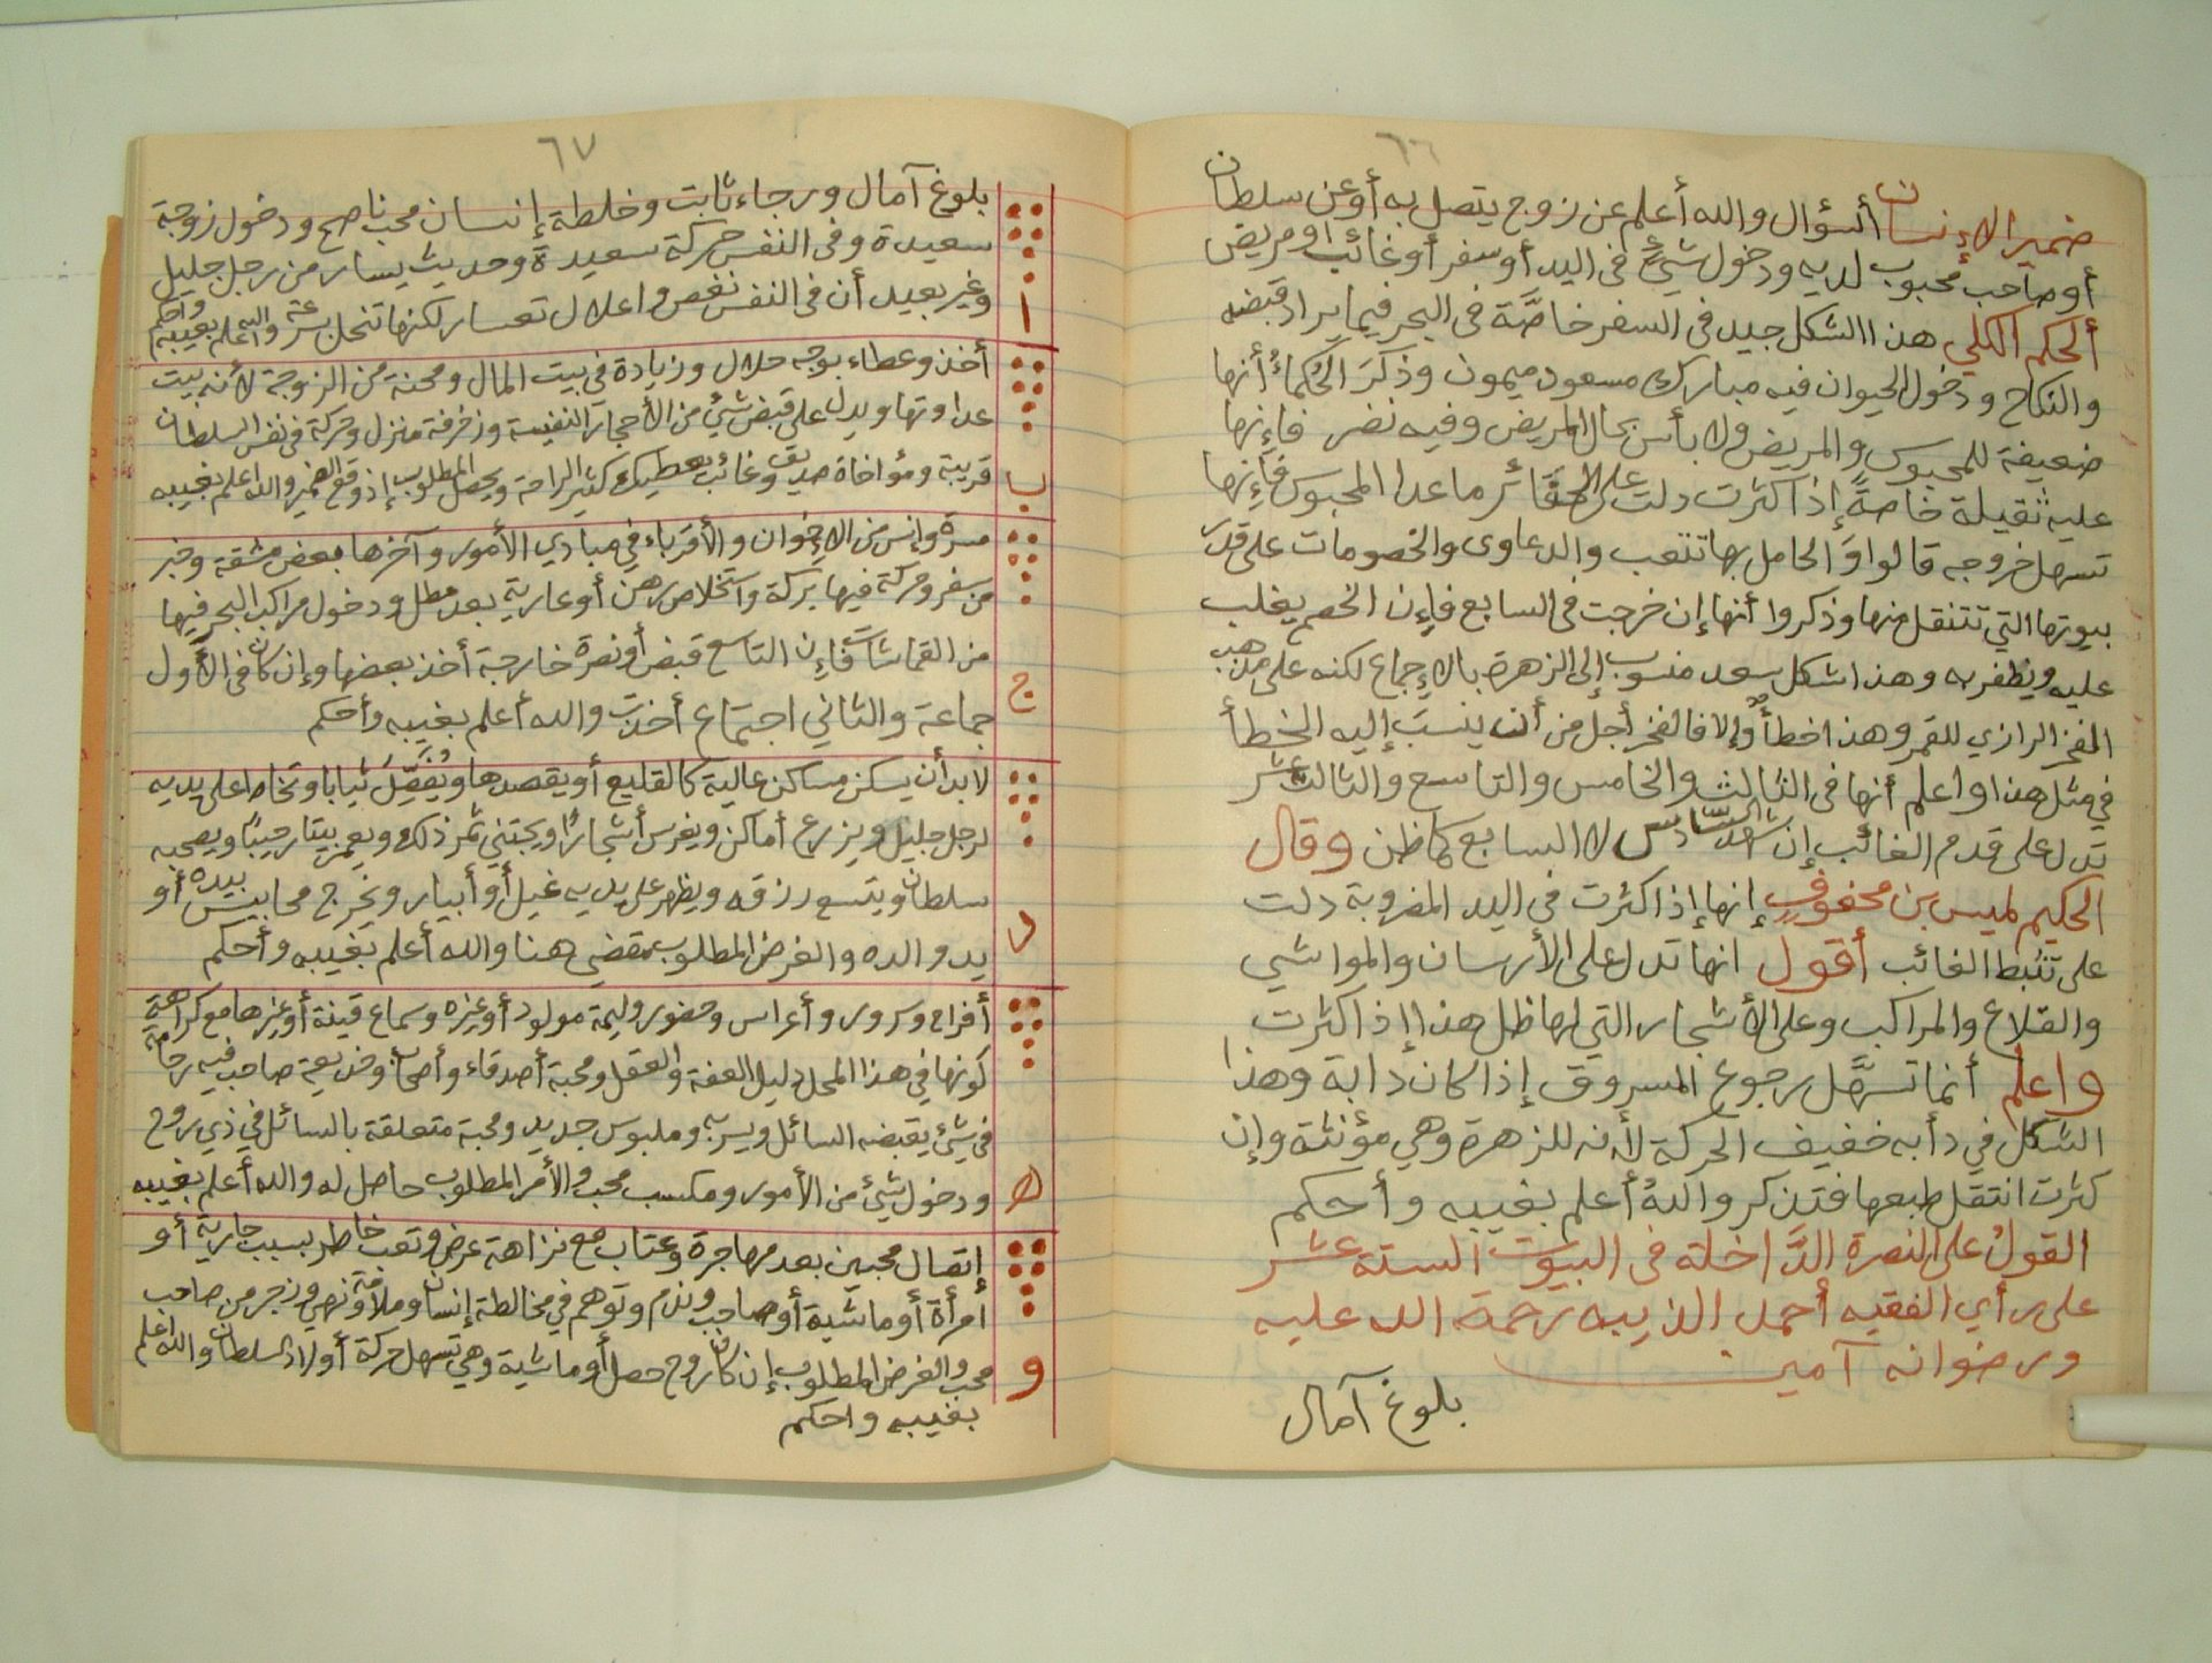 ٦٦
ضمير الإنسان السؤال والله أعلم عن زوج يتصل به أو عن سلطان
أو صاحب محبوب لديه ودخول شيء في اليد أو سفر أو غائب أو مريض
ألحكم الكلي هذا الشكل جيد في السفر خاصَّة في البحر فيما يراد قبضه
والنكاح ودخول الحيوان فيه مبارك مسعود ميمون وذكَرَ الحُكماءُ أنها
ضعيفة للمحبوس والمريض ولا بأس بحال المريض وفيه نضر فإنها
عليه ثقيلة خاصةً إذا كثرت دلت على الحقائر ما عدا المحبوس فإنها
تسهل خروجه قالوا وَالحامل بها تتعب والدعاوى والخصومات على قدر
بيوتها التي تتنقل منها وذكروا أنها إن خرجت في السابع فإن الخصم يغلب
عليه ويظفر به وهذا شكل سعد منسوب إلى الزهرة بالإجماع لكنه على مذهب
الفخر الرازي للقمر وهذا خطأٌ وإلا فالفخر أجل من أن ينسَبَ إليه الخطأ
في مثل هذا واعلم أنها في الثالث والخامس والتاسع والثالث عشر
تدل على قدم الغائب إن شهد السادس لا السابع كما ظن وقال
الحكيم لميس بن محفوف إنها إذا كثرت في اليد المضروبة دلت
على تثبط الغائب أقول انها تدل على الأرسان والمواشي
والقلاع والمراكب وعلى الأشجار التي لها ظل هذا إذا كثرت
واعلم أنما تسهَّل رجوع المسروق إذا كان دابة وهذا
الشكل في دأبه خفيف الحركة لأنه للزهرة وهي مؤنثة وإن
كثرت انتقل طبعها فتذكر واللهُ أعلم بغيبه وأحكم
القولُ على النصرة الدَّاخلة في البيوت الستة عشر
على رأي الفقيه أحمد الذيبه رحمة الله عليه
ورضوانه آمين
بلوغ آمال
٦٧
بلوغ آمال ورجاء ثابت وخلطة إنسان محب ناصح ودخول زوجة
سعيدة وفي النفس حركة سعيدة وحديث يسار من رجل جليل
وغير بعيد أن في النفس نغص واعلال تعسار لكنها تنحل بسرعة والله أعلم بغيبه وأحكم
ا
أخذ وعطاء بوجه حلال وزيادة في بيت المال ومحنة من الزوجة لأنه بيت
عداوتها ويدل على قبض شيءٍ من الأحجار النفيسة وزخرفة منزل وحركة في نفس السلطان
قريبة ومؤاخاة صديق وغائب يعطيك كثير الرامة ويحصل المطلوب إذ وقع الضمير والله اعلم بغيبه
ب
مسرة وإنس من الإخوان والأقرباء في مبادي الأمور وآخرها بعض مشقة وخبر
من سفر وحركة فيها بَركة واستخلاص رهن أو عارية بعد مطل ودخول مراكب البحر فيها
من القماشات فإن التاسع قبض أو نصرة خارجة أخذ بعضها وإن كان في الأول
جماعة والثاني اجتماع أخذت والله أعلم بغيبه وأحكم
ج
لابد أن يسكن مساكن عالية كالقليع أو يقصدها ويُفَصِّلُ ثيابا وتخاط على يديه
لرجل جليل ويزرع أماكن ويغرس أشجارًا ويجتني ثمر ذلك ويعمر بيتا رحيبًا ويصحبه
سلطان ويتسع رزقه ويظهر على يديه غيل أو أبيار ويخرج محابيس بيده أو
يد والده والغرض المطلوب مقضي هنا والله أعلم بغيبه وأحكم
د
أفراح وسرور وأعراس وحضور وليمة مولود أو غيره وسماع قينة أو غيرها مع كراهة
كونها في هذا المحل دليل العفة والعقل ومحبة أصدقاء وأصحاب وخديعة صاحب فيه رحامة
في شيئ يقبضه السائل ويسر به وملبوس جديد ومحبة متعلقة بالسائل في ذي روح
ودخول شيئ من الأمور ومكسب محب والأمر المطلوب حاصل له والله أعلم بغيبه
ه
إتصال محبين بعد مهاجرة وعتاب مع نزاهة عرض وتعب خاطر بسبب جارية أو
امرأة أو ماشية أو صاحب وندم وتوهم في مخالطة إنسان وملامة ونهي وزجر من صاحب
محب والغرض المطلوب إن كان روح حصل أو ماشية وهي تسهل حركة أولاد السلطان والله اعلم
بغيبه واحكم
و